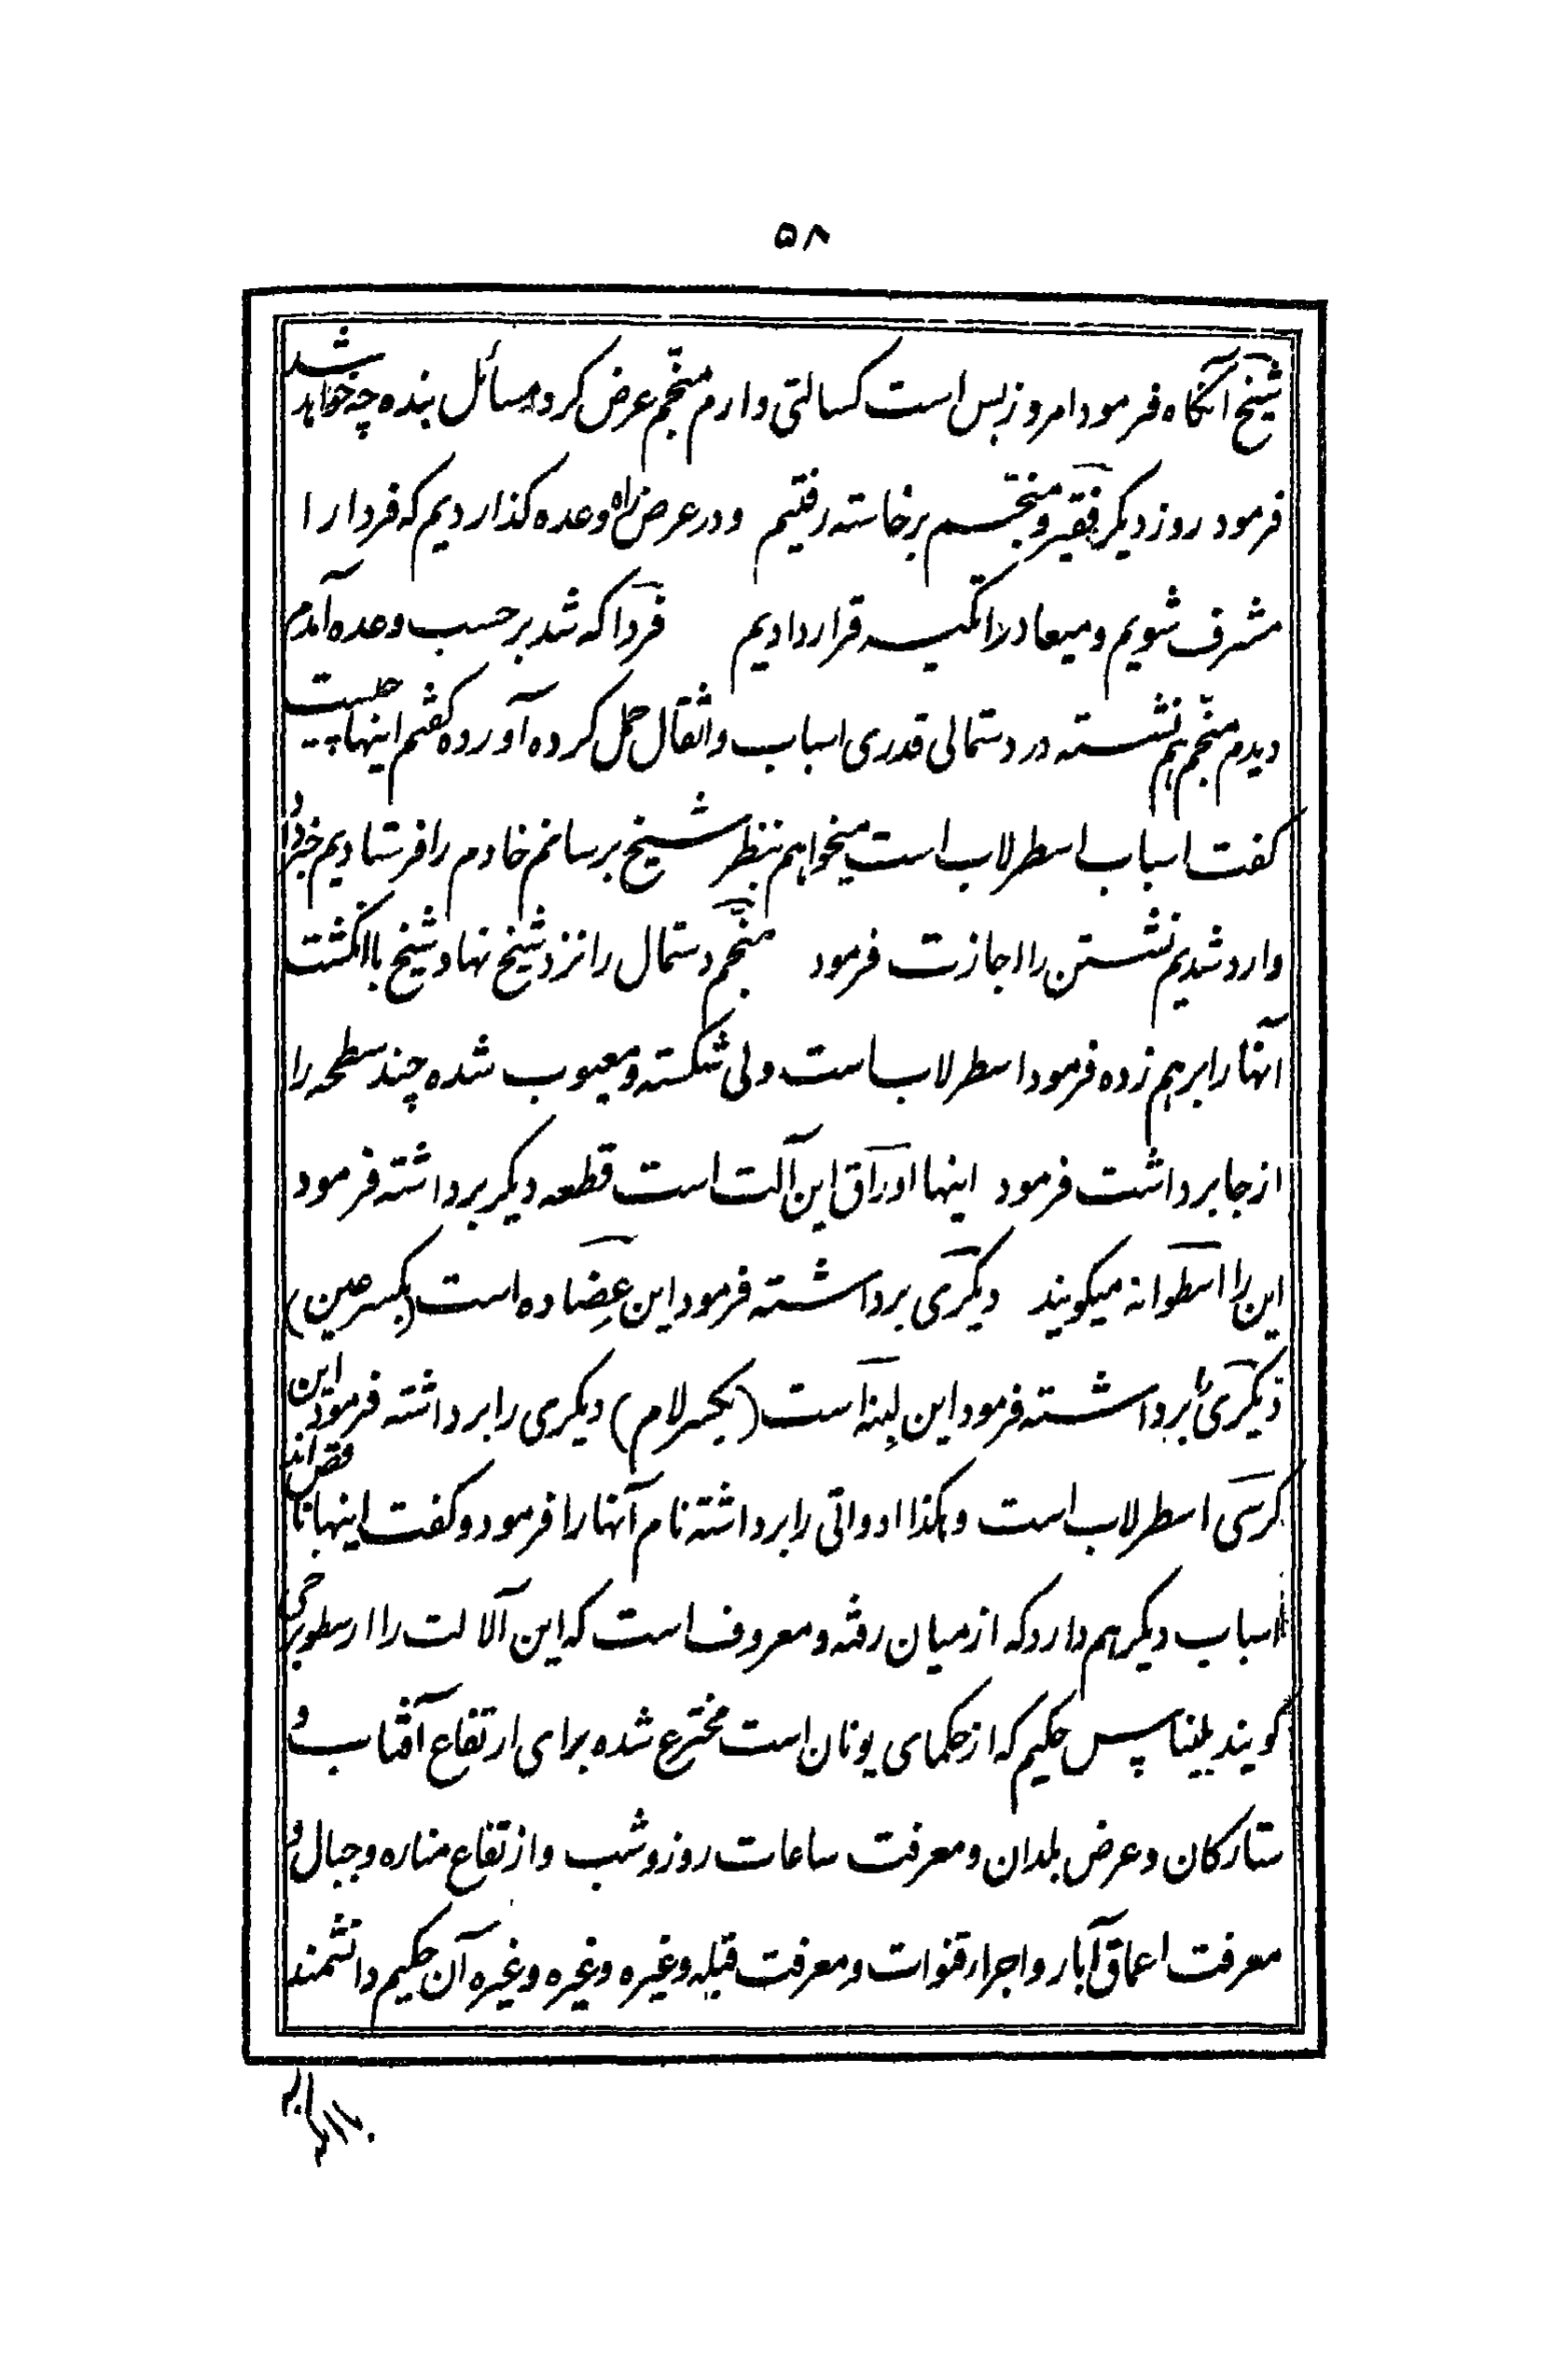 ۵۸
شیخ آنگاه فرمود امروز بس است کسالتی دارم منجّم عرض کرد مسائل بنده چه خواهد شد
فرمود روز دیکر فقیر و منجّم برخاسته رفتیم و در عرض راه وعده کذاردیم که فردا را
مشرف شویم و میعاد را تکیه قرار دادیم فردا که شد بر حسب وعده آمدم
دیدم منجّم هم نشسته در دستمالی قدری اسباب و اثقال حمل کرده آورده کفتم اینها چیست
کفت اسباب اسطرلاب است میخواهم بنظر شیخ برسانم خادم را فرستادیم خبر داد
وارد شدیم نشستن را اجازت فرمود منجم دستمال را نزد شیخ نهاد شیخ با انکشت
آنها را برهم زده فرمود اسطرلاب است ولی شکسته و معیوب شده چند سطحه را
از جا برداشت فرمود اینها اوراق این آلت است قطعه دیکر برداشته فرمود
این را اسطوانه میکویند دیکری برداشته فرمود این عِضاده است (بکسر عین)
دیکری را برداشته فرمود این لِبنه است (بکسر لام) دیکری را برداشته فرمود این
کرسی اسطرلاب است و هکذا ادواتی را برداشته نام آنها را فرمود و کفت اینها ناقص‌اند
اسباب دیکر هم دارد که از میان رفته و معروف است که این آلات را ارسطو برخی
کویند بلیناس حکیم که از حکمای یونان است مخترع شده برای ارتفاع آفتاب و
ستارکان و عرض بلدان و معرفت ساعات روز و شب و ارتفاع مناره و جبال و
معرفت اعماق آبار و اجراء قنوات و معرفت قبله و غیره و غیره و غیره آن حکیم دانشمند